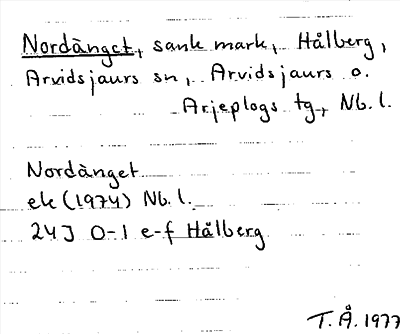 Nordänget, sank mark, Hålberg,
Arvidsjaurs sn, Arvidsjaurs o.
Arjeplogs tg, Nb. l.
Nordänget
ek (1974) Nb. l.
24J 0-1 e-f Hålberg
T. Å. 1977